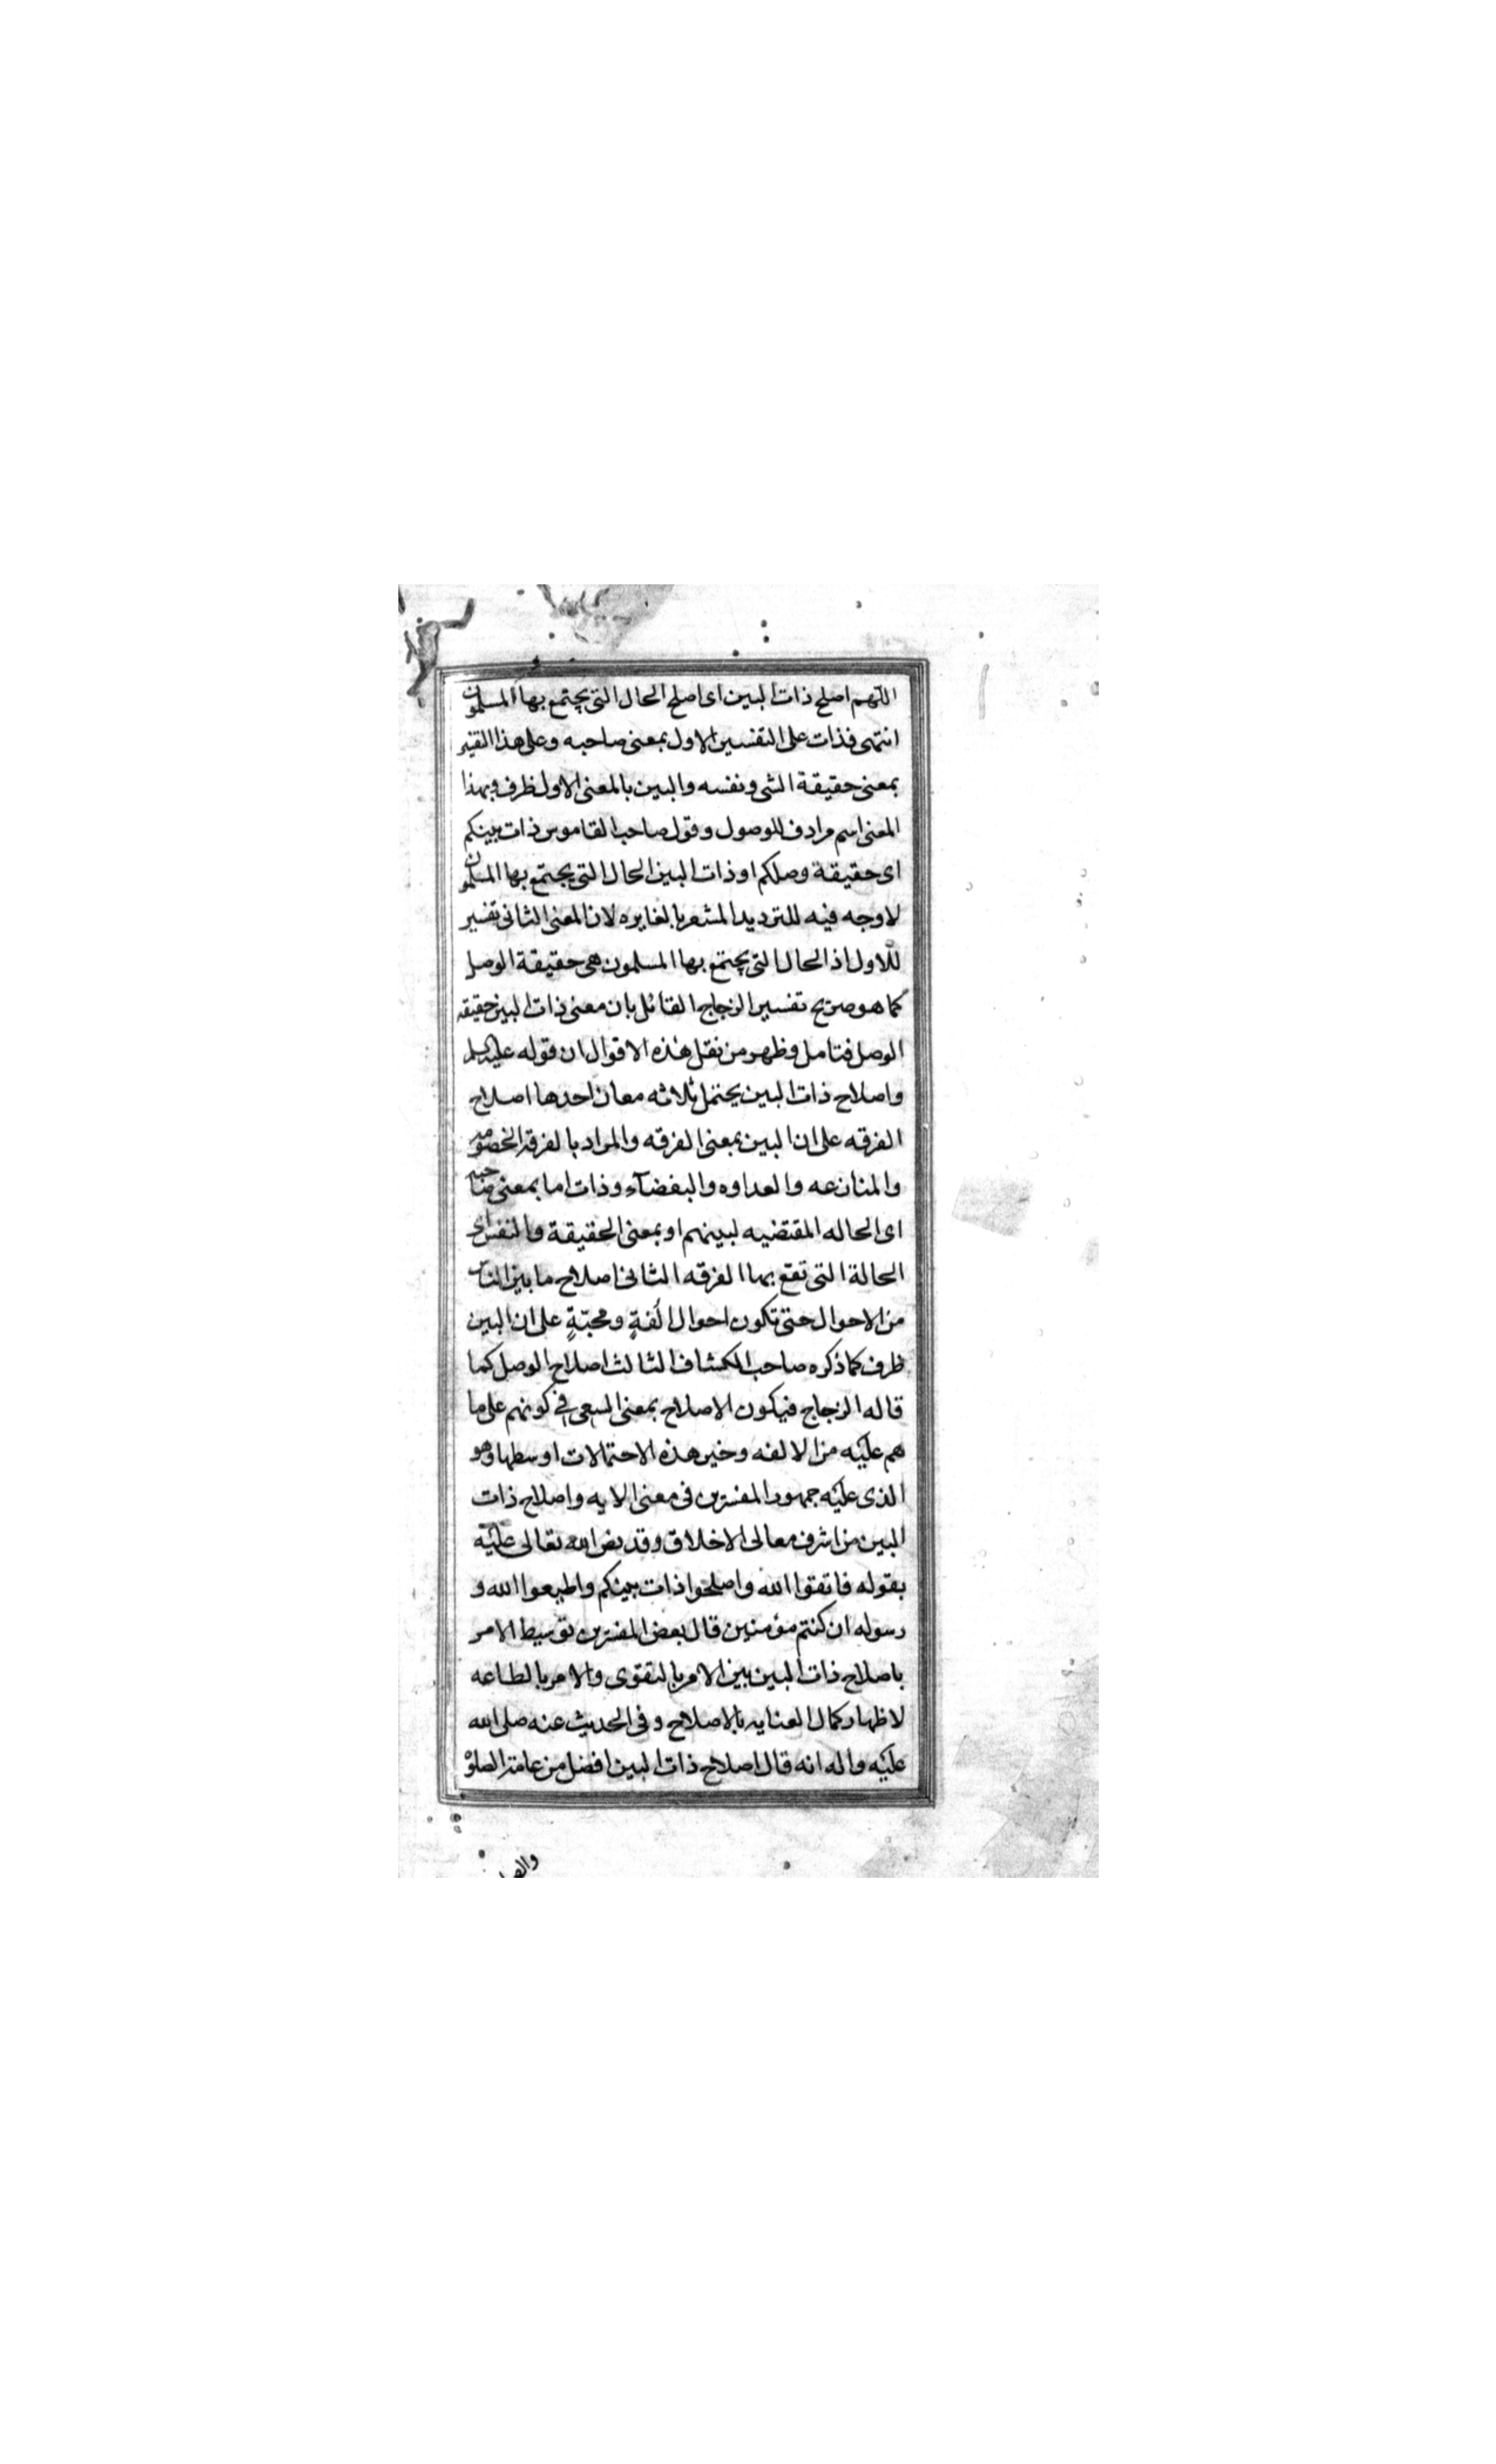 اللهم اصلح ذات البين اى اصلح الحال التى يجتمع بها المسلمون
انتهى فذات على التفسير الاول بمعنى صاحبه وعلى هذا التفسير
بمعنى حقيقة الشى ونفسه والبين بالمعنى الاول ظرف وبهذا
المعنى اسم مرادف للوصول وقول صاحب القاموس ذات بينكم
اى حقيقة وصلكم او ذات البين الحال التى يجتمع بها المسلمون
لا وجه فيه للترديد المشعر بالمغايره لان المعنى الثانى تفسير
للاول اذ الحال التى يجتمع بها المسلمون هى حقيقة الوصل
كما هو صريح تفسير الزجاج القائل بان معنى ذات البين حقيقه
الوصل فتامل وظهر من نقل هذه الاقوال ان قوله عليه السلم
واصلاح ذات البين يحتمل ثلاثه معان احدها اصلاح
الفرقه على ان البين بمعنى الفرقه والمراد بالفرقه الخصومه
والمنازعه والعداوه والبغضآء وذات اما بمعنى صاحبه
اى الحاله المقتضيه لبينهم او بمعنى الحقيقة والنفس اى
الحالة التى تقع بها الفرقه الثانى اصلاح ما بين الناس
من الاحوال حتى تكون احوال الفةٍ ومحبّةٍ على ان البين
ظرف كما ذكره صاحب الكشاف الثالث اصلاح الوصل كما
قاله الزجاج فيكون الاصلاح بمعنى السعى فى كونهم على ما
هم عليه من الالفه وخير هذه الاحتمالات اوسطها وهو
الذى عليه جمهور المفسرين فى معنى الايه واصلاح ذات
البين من اشرف معالى الاخلاق وقد نص الله تعالى عليه
بقوله فاتقوا الله واصلحوا ذات بينكم واطيعوا الله و
رسوله ان كنتم مؤمنين قال بعض المفسرين توسيط الامر
باصلاح ذات البين بين الامر بالتقوى والامر بالطاعه
لاظهار كمال العنايه بالاصلاح وفى الحديث عنه صلى الله
عليه واله انه قال اصلاح ذات البين افضل من عامة الصلوة